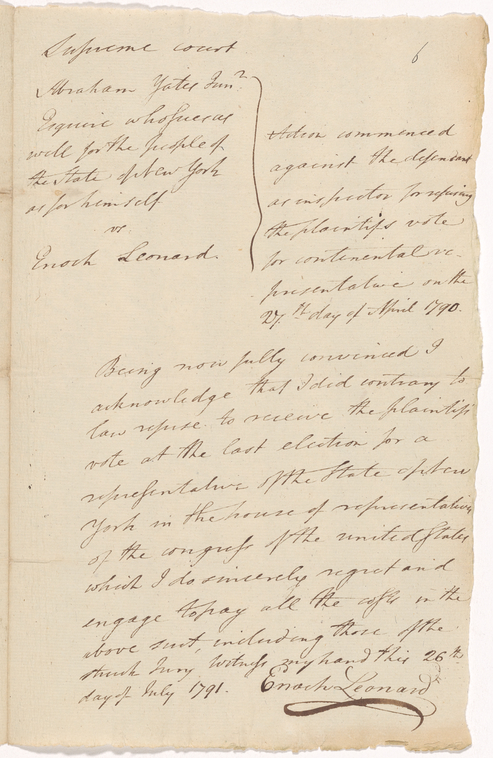 Supreme court
6
Abraham Yates Junr
Esquire who sues as
well for the people of
the State of New York
as for himself
vs
Enoch Leonard.
Action commenced
against the defendant
as inspector for refusing
the plaintifs vote
for continental re-
presentative on the
27th day of April 1790.
Being now fully convinced I
acknowledge that I did contrary to
law refuse to receive the plaintifs
vote at the last election for a
representative of the State of New
York in the house of representatives
of the congress of the united States
which I do sincerely regret and
engage to pay all the costs in the
above suit, including those of the
struck Jury. Witness my hand this 26th
day of July 1791. Enoch Leonard